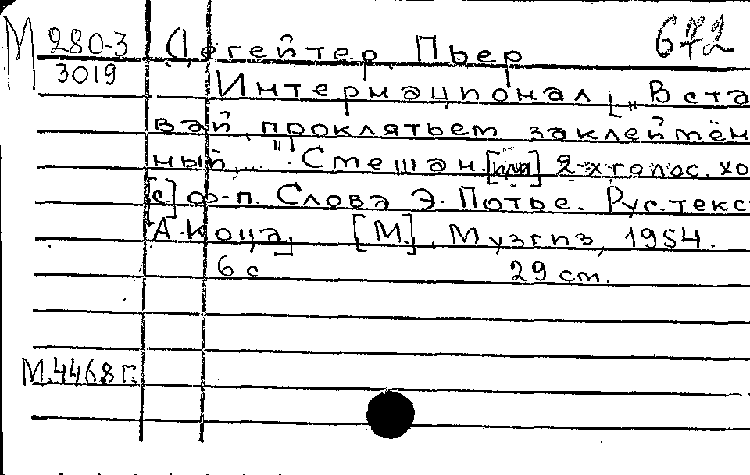 М 280-3 Дегейтер, Пьер 672
3019
Интернационал [„Вста
вай, проклятьем заклеймён
ный,..." Смешан. [или] 2-хголос. хо
[с] ф-п. Слова Э. Потье. Рус. текс
А. Коца] [М.], Музгиз, 1954.
6 с 29 см.
М.4468 г.